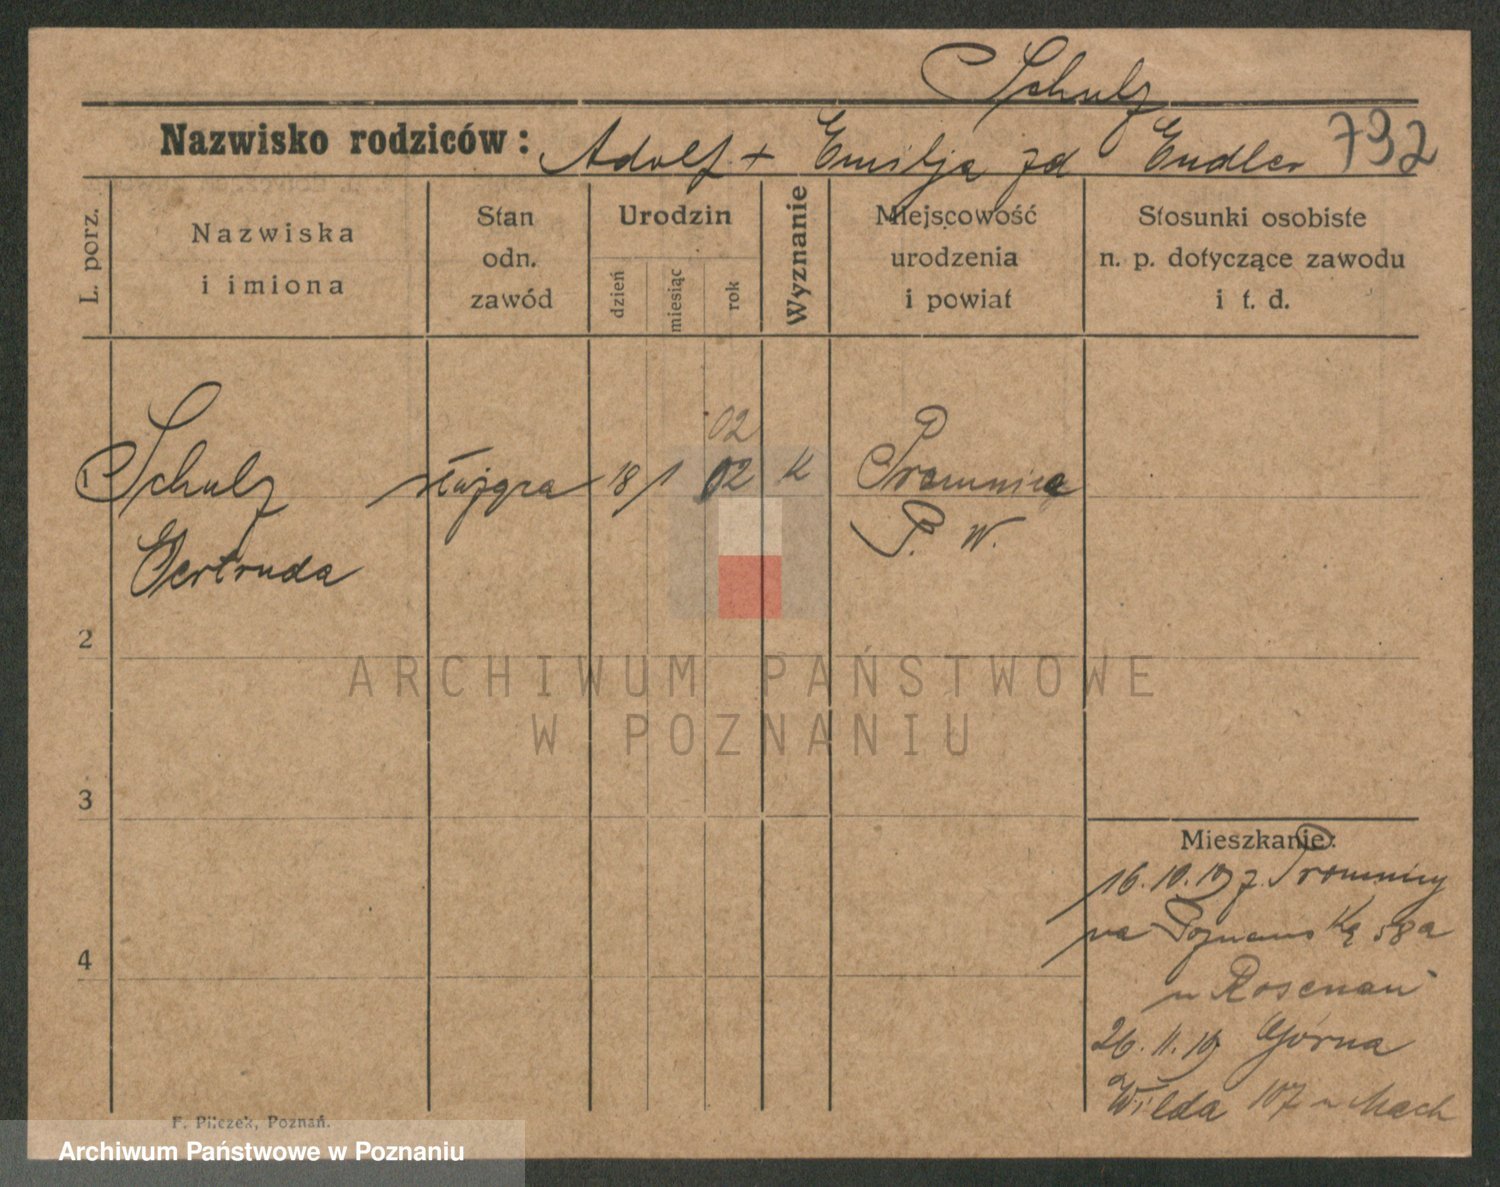 Schulz
Nazwisko rodziców: Adolf + Emilja zd Endler 732
L. porz.
Nazwiska
i imiona
Stan
odn.
zawód
Urodzin
dzień
miesiąc
rok
Wyznanie
Miejscowość
urodzenia
i powiat
Stosunki osobiste
n. p. dotyczące zawodu
i t. d.
02
1 Schulz służąca 18 1 02 K Promnice
Gertruda P. W.
2
ARCHIWUM PAŃSTWOWE
W POZNANIU
3
Mieszkanie:
16.10.19 z Promnicy
na 58a
u Rosenau
4
26.11.19 Górna
Wilda 107 u Mach
F. Pilczek, Poznań.
Archiwum Państwowe w Poznaniu